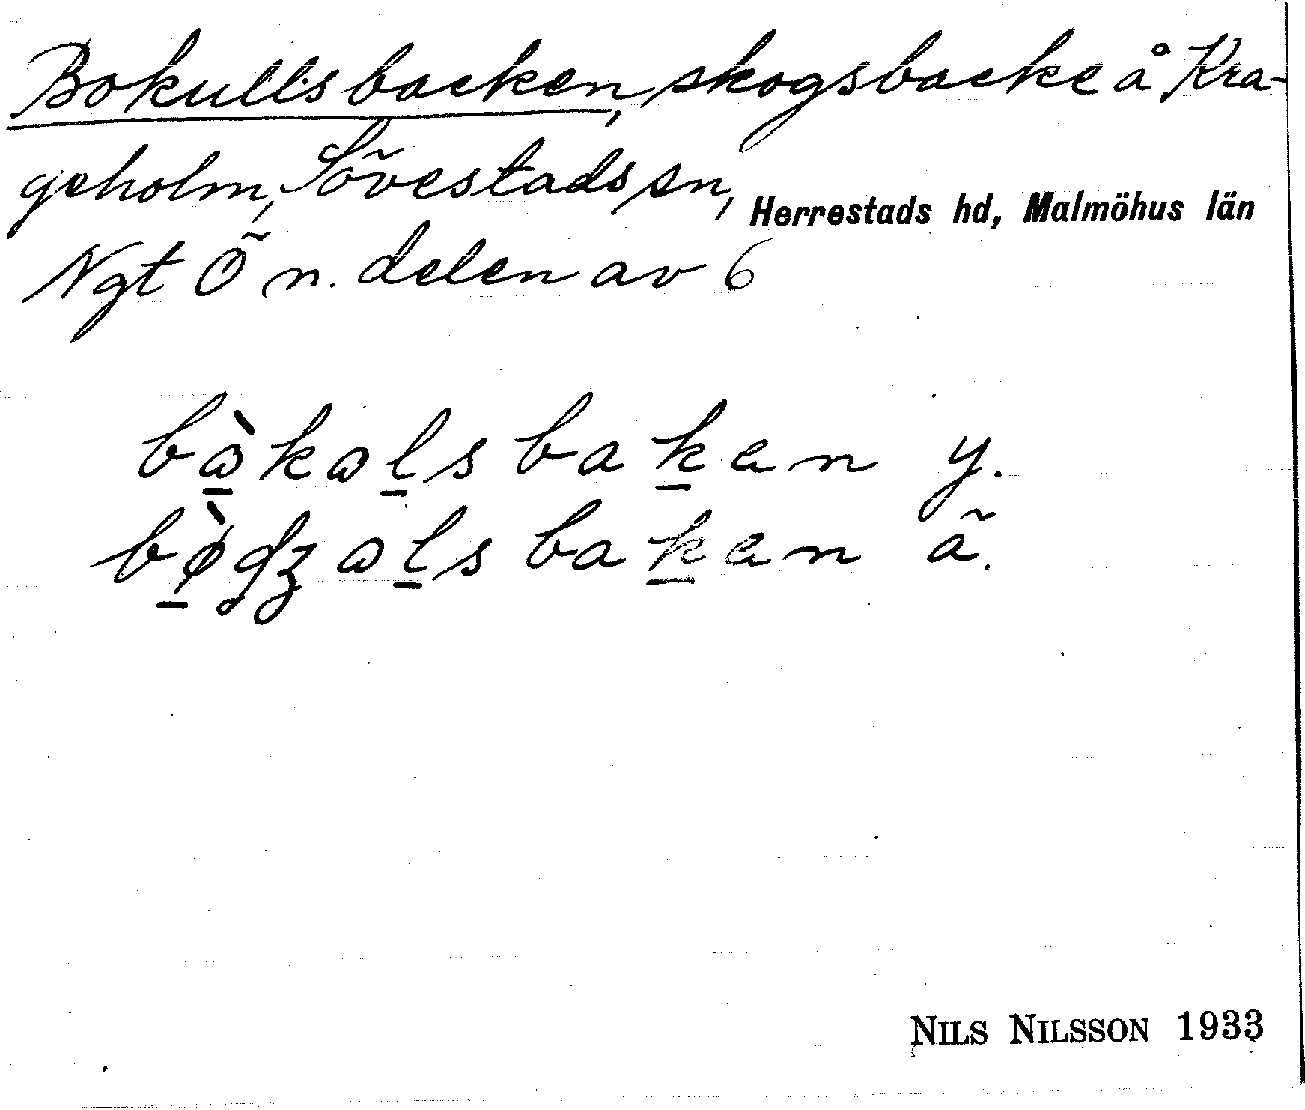 Bokullsbacken, skogsbacke å Kra-
geholm, Sövestads sn, Herrestads hd, Malmöhus län
Ngt Ö n. delen av 6
bɷ̀kɷlsbaken y.
bø̀dʒɷlsbaken ä.
NILS NILSSON 1933